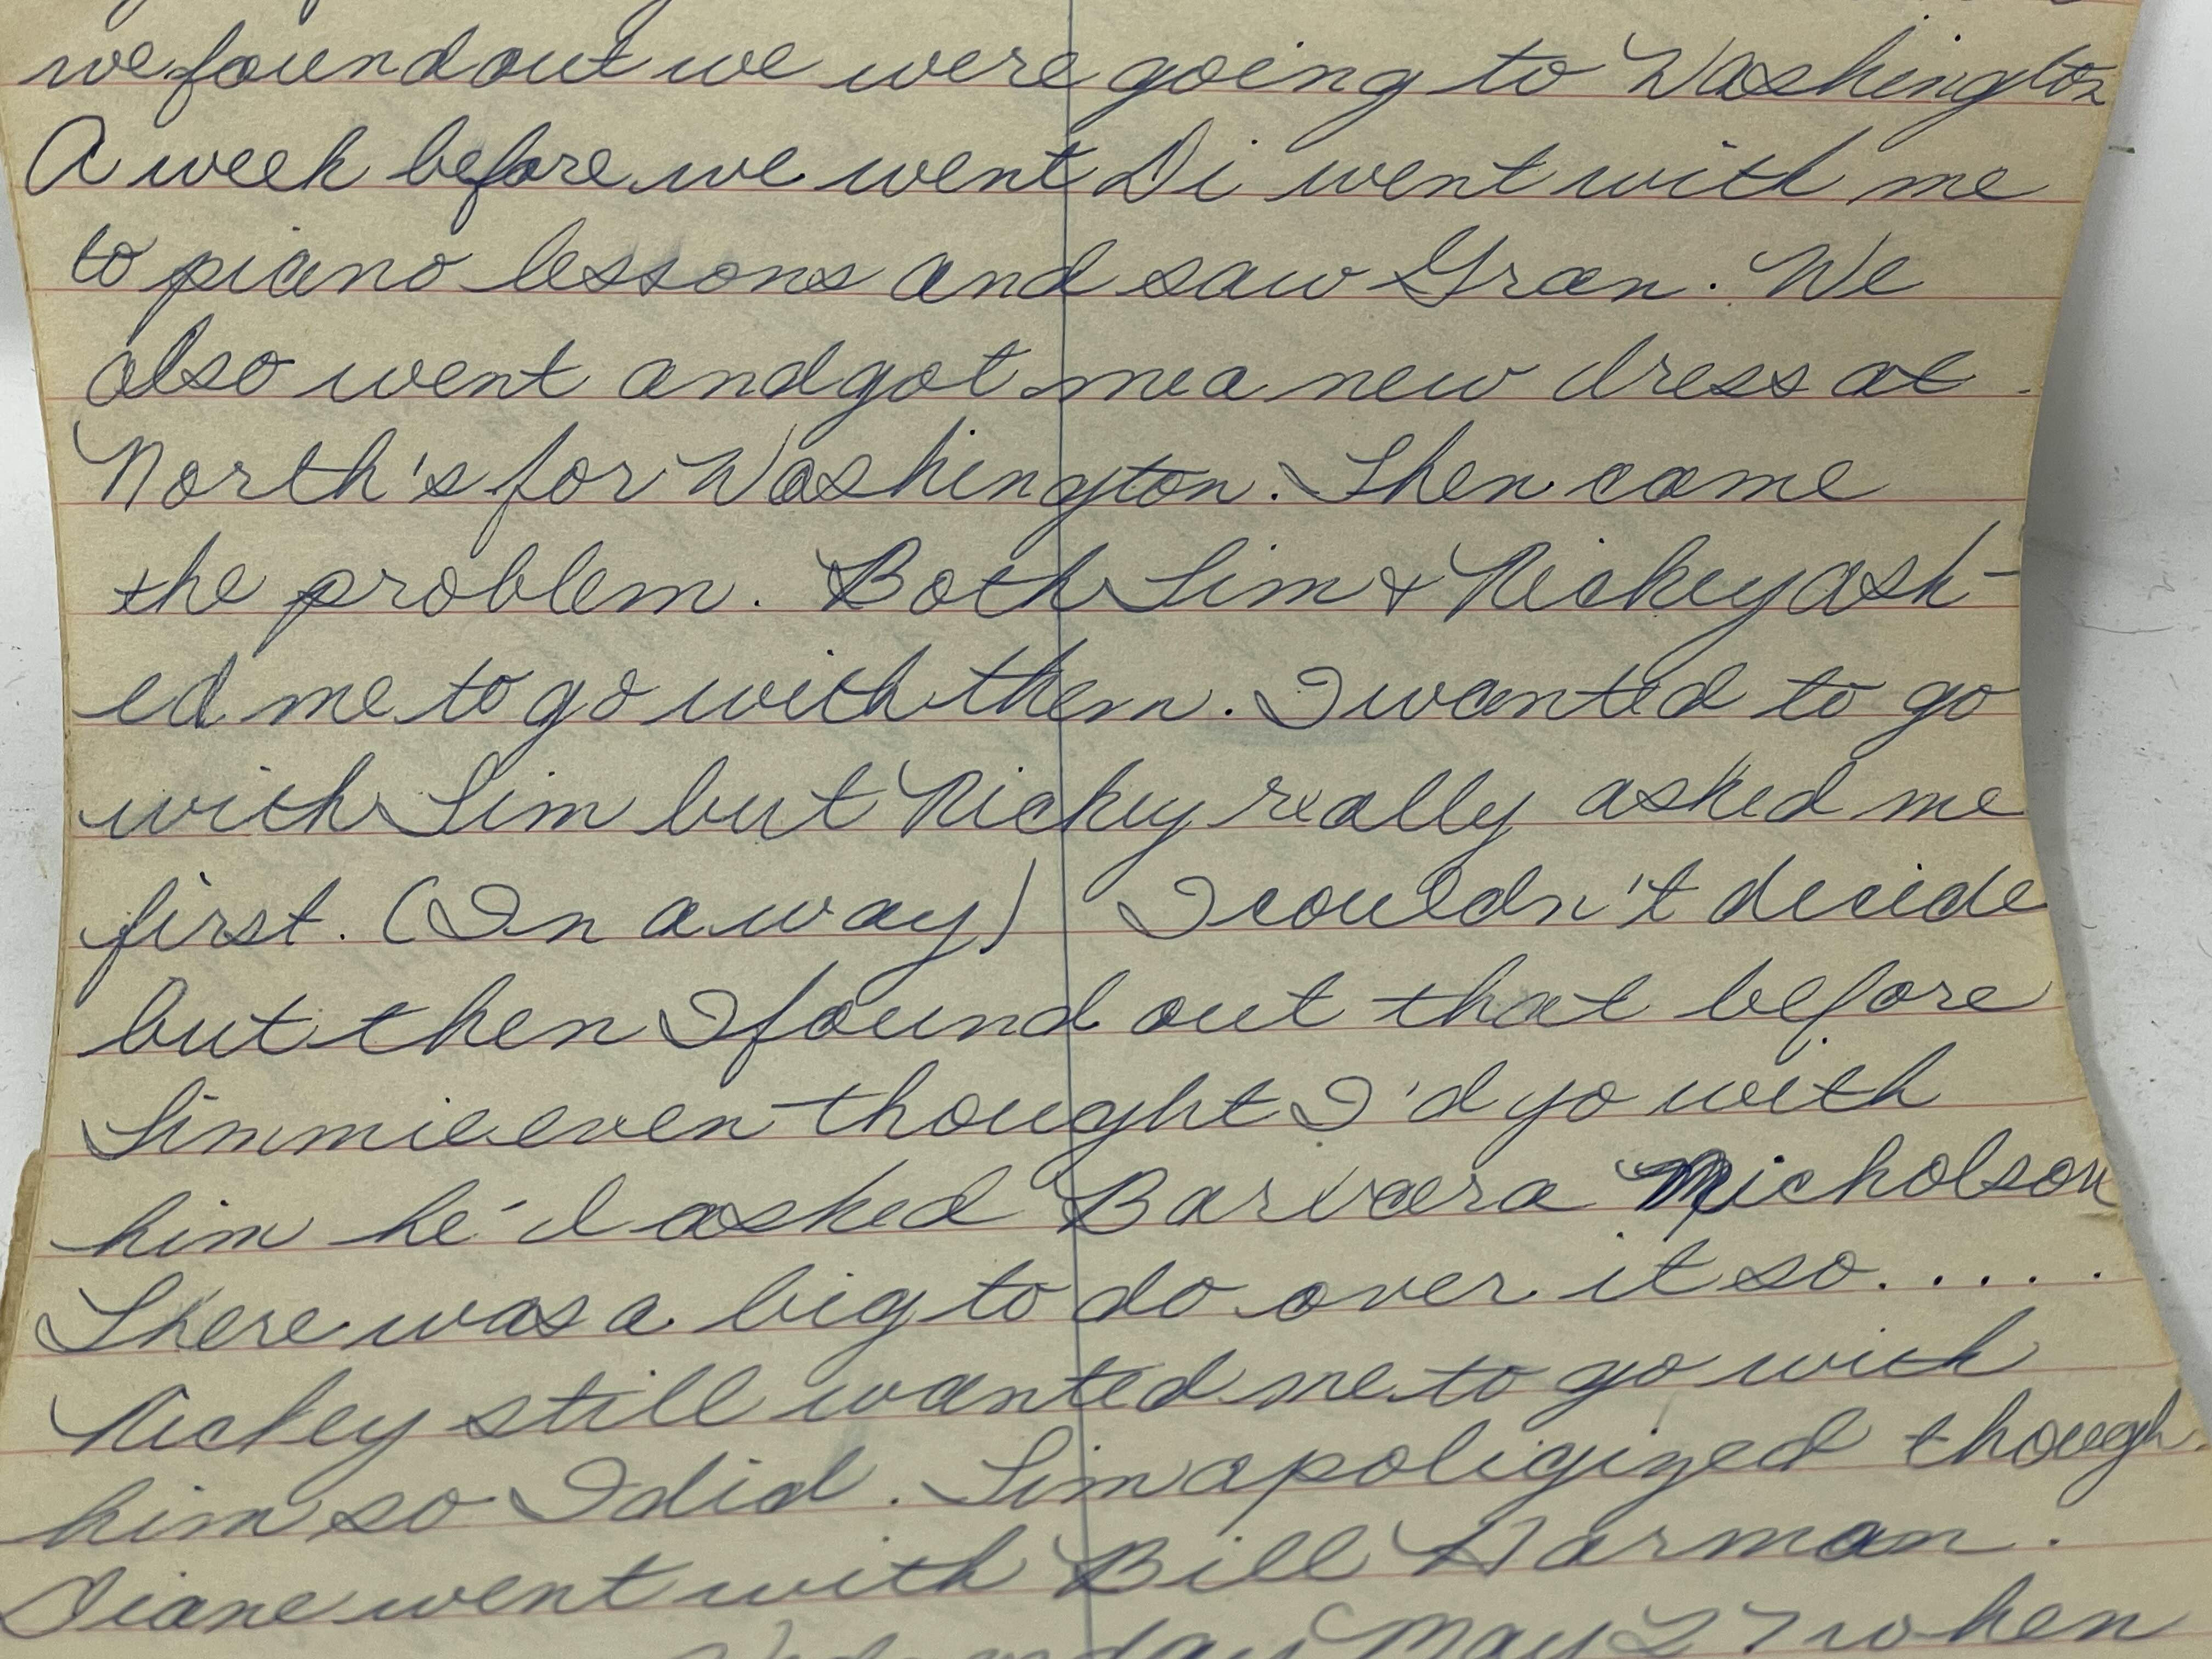 we found out we were going to Washington
A week before we went Di went with me
to piano lessons and saw Gran. We
also went and got me a new dress at
North's for Washington. Then came
the problem. Both Jim & Rickey ask-
ed me to go with them. I wanted to go
with Jim but Rickey really asked me
first. (In a way) I couldn't decide
but then I found out that before
Jimmie even thought I'd go with
him he'd asked Barbara Nicholson
There was a big to do over it so.....
Rickey still wanted me to go with
him so I did. Jim apoligized though.
Diane went with Bill Harman.
May 27 when